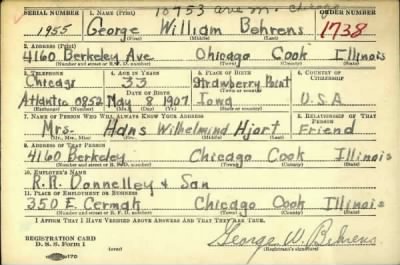 10753 ave m. Chicago
SERIAL NUMBER 1. NAME (Print) ORDER NUMBER
1955 George William Behrens 1738
(First) (Middle) (Last)
2. ADDRESS (Print)
4160 Berkeley Ave Chicago Cook Illinois
(Number and street or R. F. D. number) (Town) (County) (State)
3. TELEPHONE 4. AGE IN YEARS 5. PLACE OF BIRTH 6. COUNTRY OF CITIZENSHIP
Chicago 33 Strawberry Point
DATE OF BIRTH (Town or county)
Atlantic 0852 May 8 1907 Iowa U S A
(Exchange) (Number) (Mo.) (Day) (Yr.) (State or country)
7. NAME OF PERSON WHO WILL ALWAYS KNOW YOUR ADDRESS 8. RELATIONSHIP OF THAT PERSON
Mrs. Hans Wilhelmina Hjort Friend
(Mr., Mrs., Miss) (First) (Middle) (Last)
9. ADDRESS OF THAT PERSON
4160 Berkeley Chicago Cook Illinois
(Number and street or R. F. D. number) (Town) (County) (State)
10. EMPLOYER'S NAME
R.R. Donnelley & Son
11. PLACE OF EMPLOYMENT OR BUSINESS
350 E. Cermak Chicago Cook Illinois
(Number and street or R. F. D. number) (Town) (County) (State)
I AFFIRM THAT I HAVE VERIFIED ABOVE ANSWERS AND THAT THEY ARE TRUE.
REGISTRATION CARD
D. S. S. Form 1
(over) George W. Behrens
(Registrant's signature)